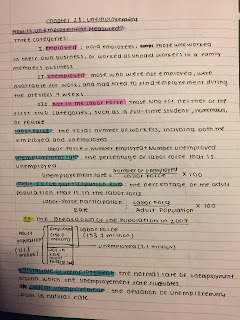 Chapter 28: Unemployment
How is unemployment Measured?
Three categories:
I. Employed: paid employees, those who worked
in their own business, or worked as unpaid workers in a family
member's business.
II. Unemployed: those who were not employed, were
available for work, and had tried to find employment during
the previous 4 weeks.
III. Not in the Labor Force: those who fit neither of the
first two categories, such as a full-time student, homemaker,
or retiree
Labor Force: the total number of workers, including both the
employed and unemployed
Labor Force = Number Employed + Number unemployed
Unemployment rate: the percentage of labor force that is
unemployed
Unemployment rate = Number of Unemployed / Labor Force X 100
Labor-Force Participation Rate: the percentage of the adult
population that is in the labor force
Labor-Force Participation Rate = Labor Force / Adult Population X 100
EX: The Breakdown of the Population in 2007
Adult Population
Employed
Labor Force
(153.1 million)
Unemployed (7.1 million)
Not in the Labor Force
Natural rate of unemployment: the normal rate of unemployment
around which the unemployment rate fluctuates
unemployment: the deviation of unemployment
from its natural rate